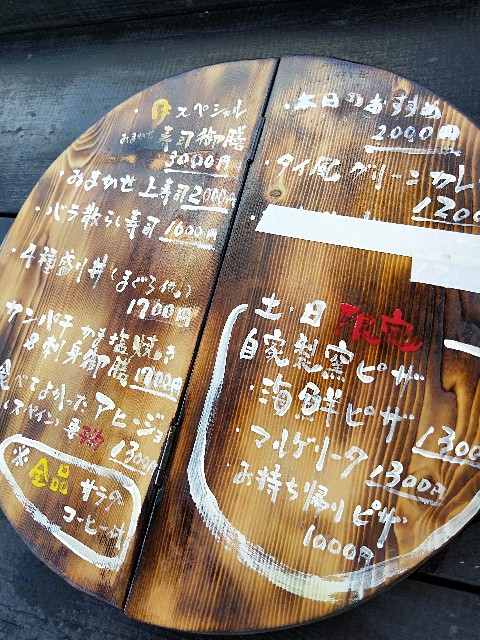 スペシャル
おまかせ 寿司御膳
3000円
・おまかせ 上寿司 2000円
・バラ散らし寿司 1600円
・4種盛り丼(まぐろ他)
1700円
カンパチ かま塩焼き
&刺身御膳 1700円
食べてよかったアヒージョ
(スペイン)
1300円
※全品 サラダ
コーヒー付
・本日のおすすめ
2000円
・タイ風グリーンカレー
1200
土・日 限定
自家製窯ピザ
・海鮮ピザ
1300
・マルゲリータ 1300円
・お持ち帰りピザ
1000円